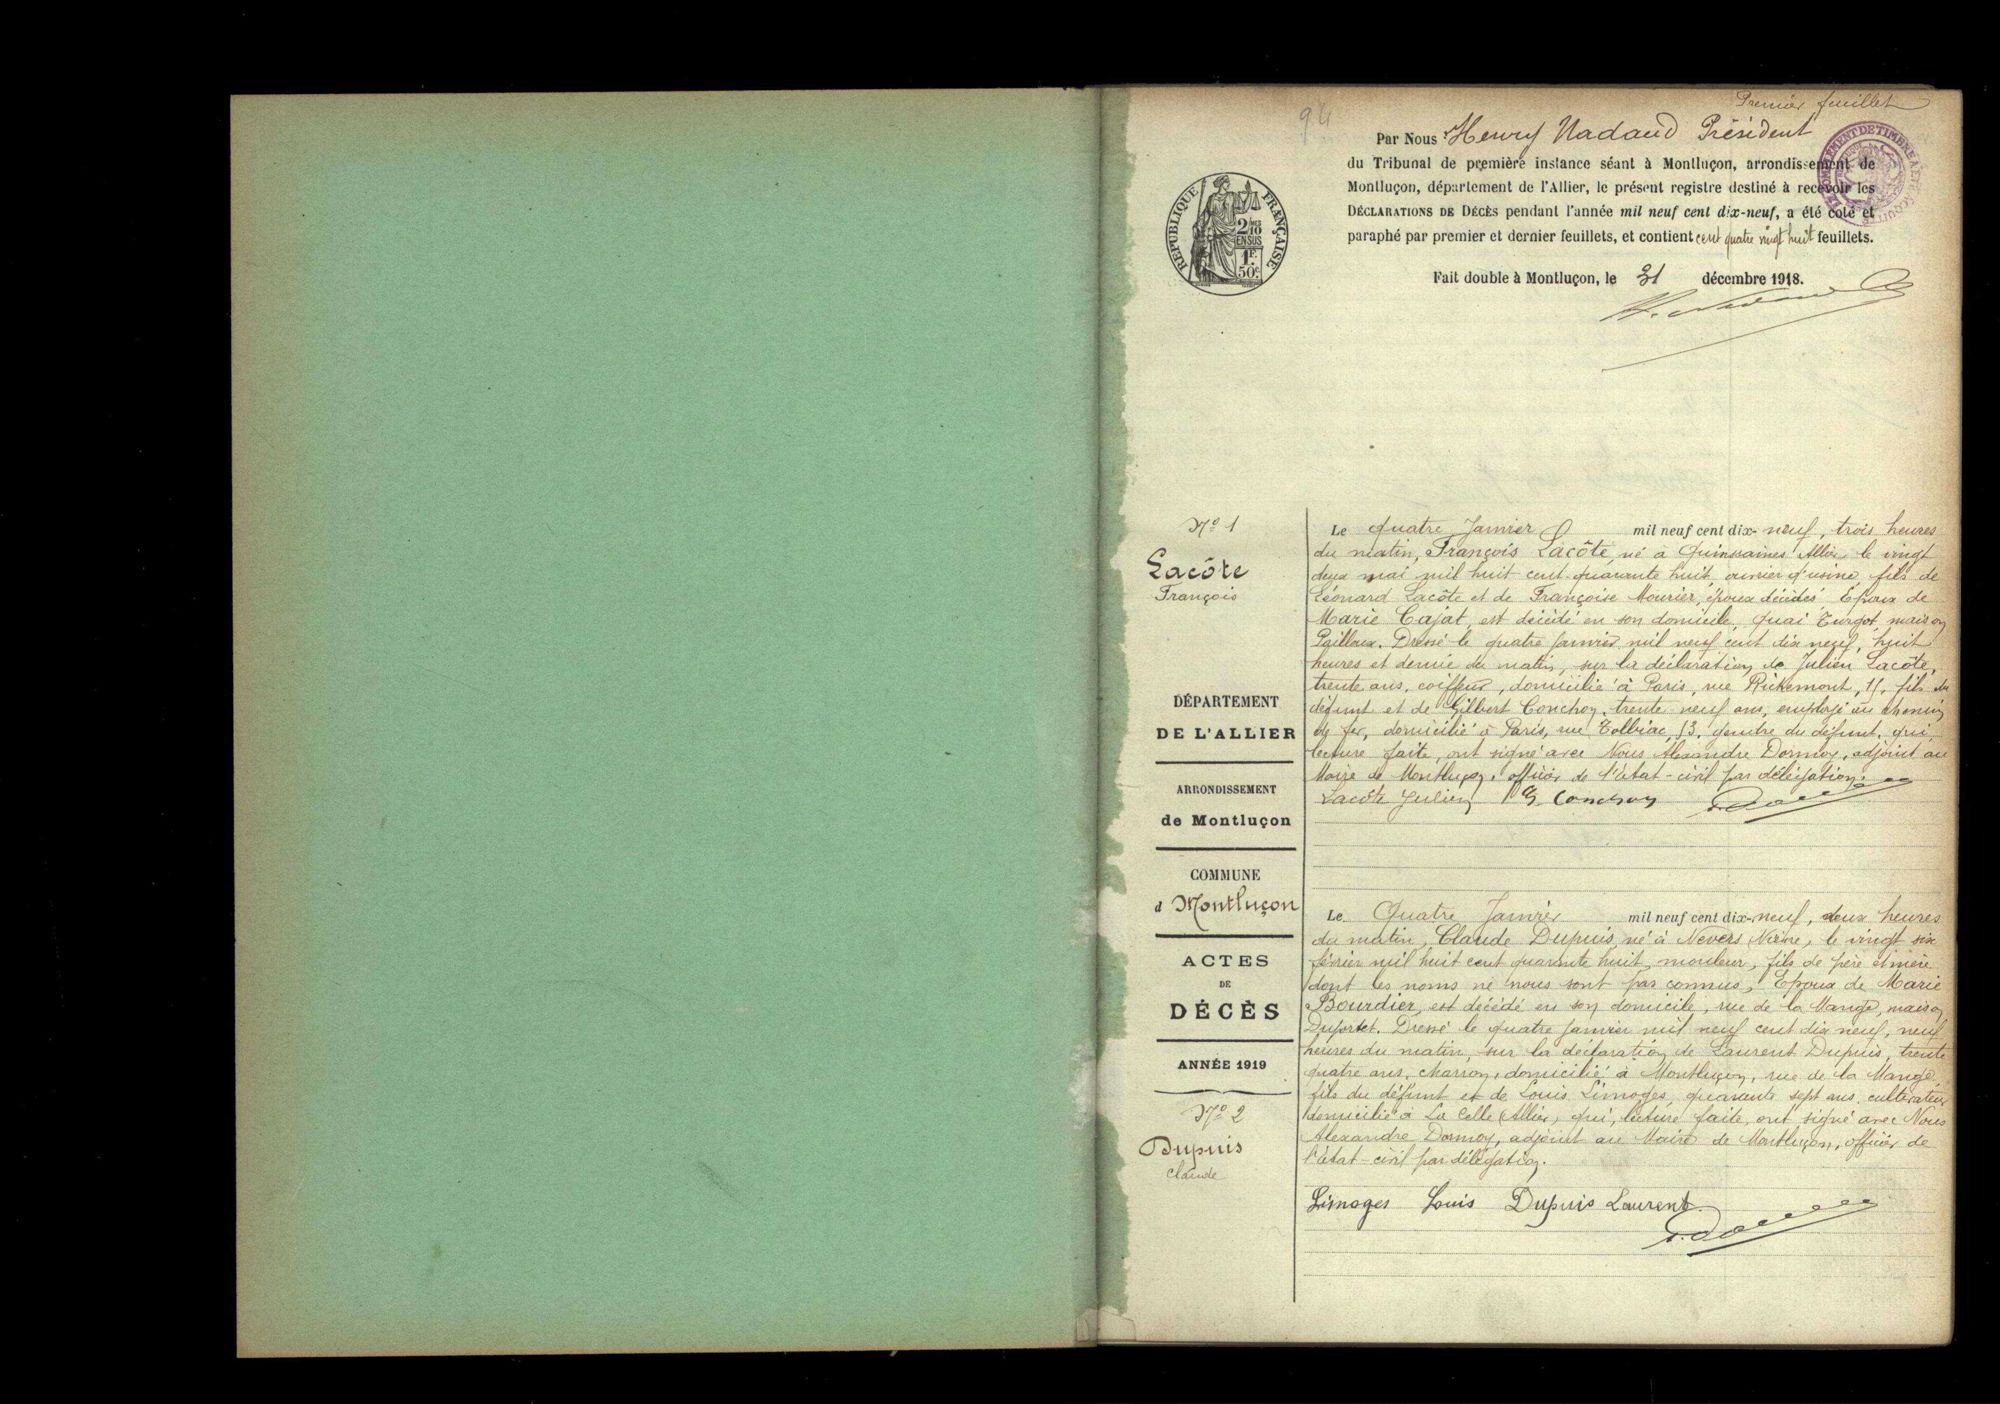 Premier feuillet
94
Par Nous Henry Nadaud Président
du Tribunal de première instance séant à Montluçon, arrondissement de
Montluçon, département de l'Allier, le présent registre destiné à recevoir les
DÉCLARATIONS DE DÉCÈS pendant l'année mil neuf cent dix-neuf, a été coté et
paraphé par premier et dernier feuillets, et contient cent quatre vingt huit feuillets.
Fait double à Montluçon, le 31 décembre 1918.
RÉPUBLIQUE FRANÇAISE
2/10 EN SUS
1F. 50c.
N° 1
Lacôte
François
Le quatre Janvier mil neuf cent dix-neuf, trois heures
du matin, François Lacôte, né à Quinssaines Allier le vingt
deux mai mil huit cent quarante huit, ouvrier d'usine, fils de
Léonard Lacôte et de Françoise Mourier, époux décédés Epoux de
Marie Cajat, est décédé en son domicile, Quai Turgot, maison
Pailloux. Dressé le quatre Janvier mil neuf cent dix neuf, huit
heures et demie du matin, sur la déclaration de Julien Lacôte,
trente ans, coiffeur, domicilié à Paris, rue Richemont, 11, fils du
défunt et de Gilbert Conchon, trente neuf ans, employé au chemin
de fer, domicilié à Paris, rue Tolbiac, 13, gendre du défunt, qui,
lecture faite, ont signé avec Nous Alexandre Dormoy, adjoint au
Maire de Montluçon, officier de l'état-civil par délégation.
Lacôte Julien G Conchon
DÉPARTEMENT
DE L'ALLIER
ARRONDISSEMENT
de Montluçon
COMMUNE
d Montluçon
ACTES
DE
DÉCÈS
ANNÉE 1919
N° 2
Dupuis
Claude
Le Quatre Janvier mil neuf cent dix-neuf, deux heures
du matin, Claude Dupuis, né à Nevers Nièvre, le vingt six
février mil huit cent quarante huit, mouleur, fils de père et mère
dont les noms ne nous sont pas connus, Epoux de Marie
Bourdier, est décédé en son domicile, rue de la Mange, maison
Dufortet. Dressé le quatre Janvier mil neuf cent dix neuf, neuf
heures du matin, sur la déclaration de Laurent Dupuis, trente
quatre ans, charron, domicilié à Montluçon, rue de la Mange,
fils du défunt et de Louis Limoges, quarante sept ans, cultivateur
domicilié à La Celle (Allier, qui, lecture faite, ont signé avec Nous
Alexandre Dormoy, adjoint au Maire de Montluçon, officier de
l'état-civil par délégation.
Limoges Louis Dupuis Laurent